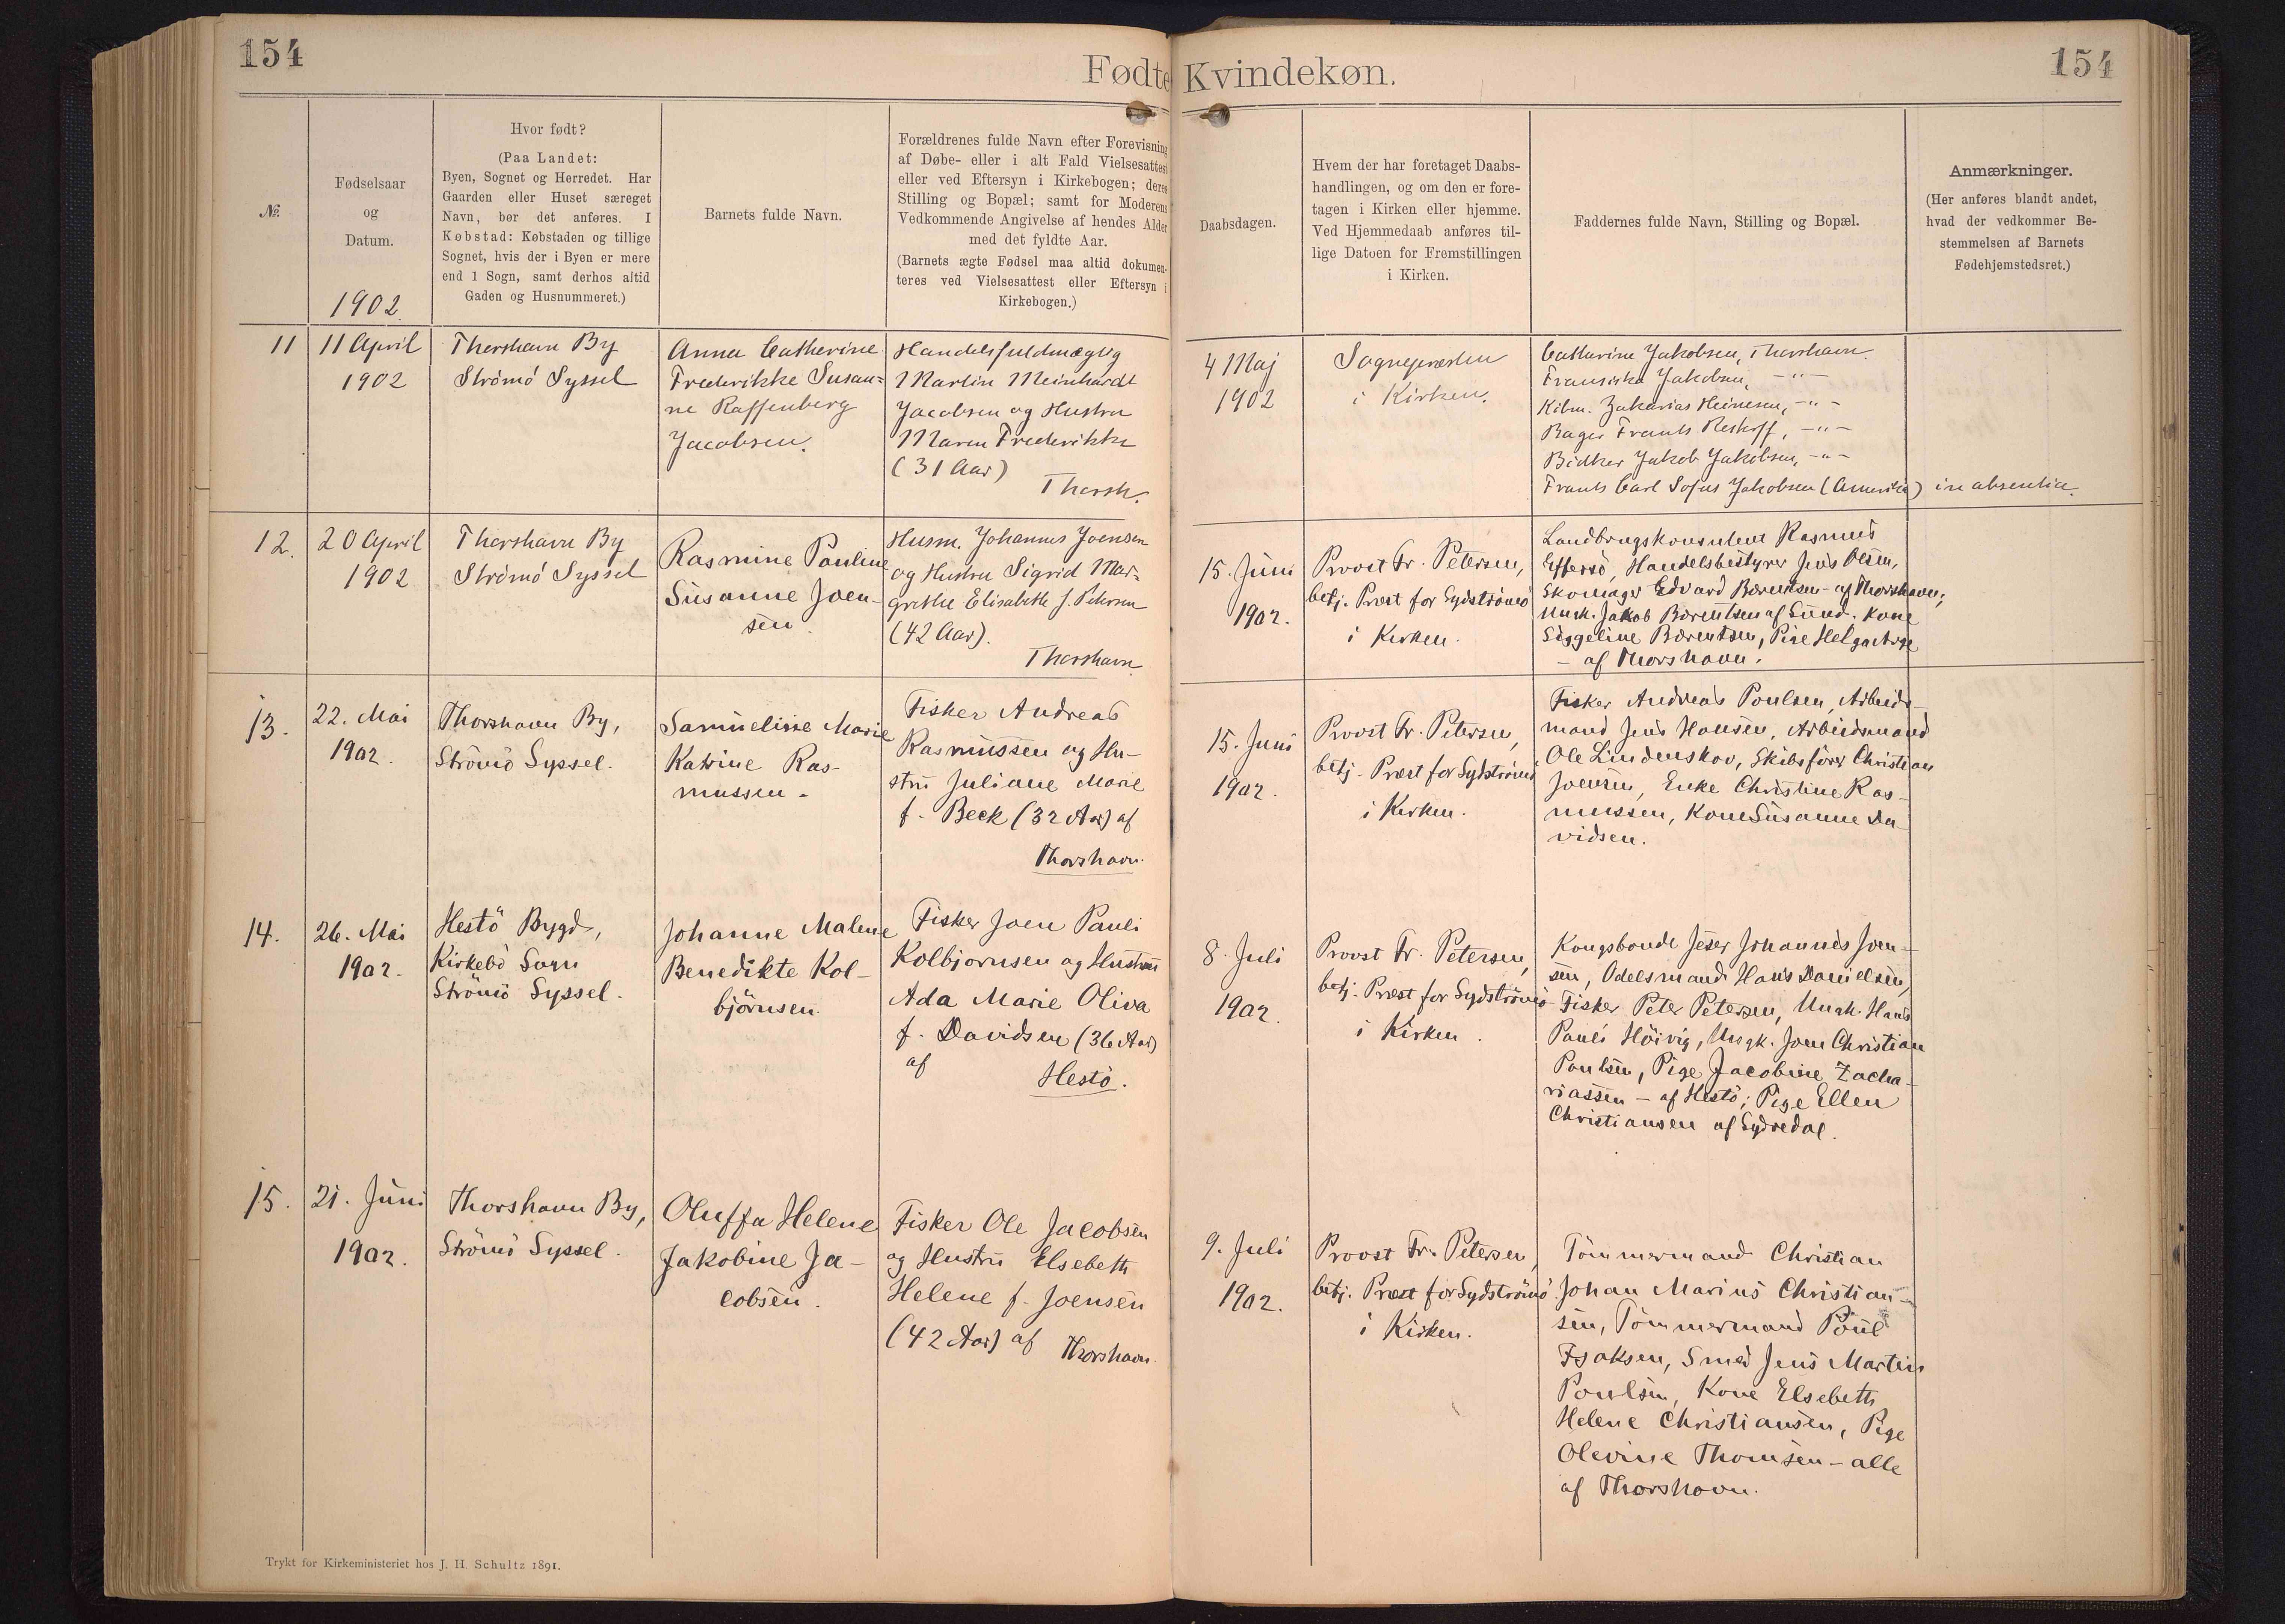 154
Fødte Kvindekøn.
154
№
Fødselsaar
og
Datum.
1902
Hvor født?
(Paa Landet:
Byen, Sognet og Herredet. Har
Gaarden eller Huset særeget
Navn, bør det anføres. I
Købstad: Købstaden og tillige
Sognet, hvis der i Byen er mere
end 1 Sogn, samt derhos altid
Gaden og Husnummeret.)
Barnets fulde Navn.
Forældrenes fulde Navn efter Forevisning
af Døbe- eller i alt Fald Vielsesattest
eller ved Eftersyn i Kirkebogen; deres
Stilling og Bopæl; samt for Moderens
Vedkommende Angivelse af hendes Alder
med det fyldte Aar.
(Barnets ægte Fødsel maa altid dokumen-
teres ved Vielsesattest eller Eftersyn i
Kirkebogen.)
Daabsdagen.
Hvem der har foretaget Daabs-
handlingen, og om den er fore-
tagen i Kirken eller hjemme.
Ved Hjemmedaab anføres til-
lige Datoen for Fremstillingen
i Kirken.
Faddernes fulde Navn, Stilling og Bopæl.
Anmærkninger.
(Her anføres blandt andet,
hvad der vedkommer Be-
stemmelsen af Barnets
Fødehjemstedsret.)
11
11 April
1902
Thorshavn By
Strömö Syssel
Anna Catherine
Frederikke Susan=
ne Raffenberg
Jacobsen.
Handelsfuldmægtig
Martin Meinhardt
Jacobsen og Hustru
Maren Frederikke
(31 Aar)
Thorsh.
4 Maj
1902
Sognepræsten
i Kirken.
Catharine Jakobsen, Thorshavn.
Fransiska Jakobsen, -"-
Kibm. Zakarias Heinesen, -"-
Bager Frants Restorff, -"-
Bödker Jakob Jakobsen, -"-
Frants Carl Sofus Jakobsen (Amerika) in absentia.
12.
20 April
1902
Thorshavn By
Strömö Syssel
Rasmine Pauline
Susanne Joen-
sen.
Husm. Johannes Joensen
og Hustru Sigrid Mar=
grethe Elisabeth f. Petersen
(42 Aar).
Thorshavn
15. Juni
1902.
Provst Fr. Petersen,
betj. Præst for Sydströmö
i Kirken.
Landbrugskonsulent Rasmus
Effersö, Handelsbestyrer Jens Olsen,
Skomager Edvard Bærentsen - af Thorshavn;
Ungk. Jakob Bærentsen af Sund. Kone
Siggeline Bærentsen, Pige Helga Arge
- af Thorshavn.
13.
22. Mai
1902.
Thorshavn By,
Strömö Syssel.
Samueline Marie
Katrine Ras-
mussen.
Fisker Andreas
Rasmussen og Hu-
stru Juliane Marie
f. Beck (32 Aar) af
Thorshavn.
15. Juni
1902.
Provst Fr. Petersen,
betj. Præst for Sydströmö
i Kirken.
Fisker Andreas Poulsen, Arbeids-
mand Jens Hansen, Arbeidsmand
Ole Lindenskov, Skibsfører Christian
Joensen, Enke Christine Ras-
mussen, Kone Susanne Da-
vidsen.
14.
26. Mai
1902.
Hestö Bygd,
Kirkebö Sogn
Strömö Syssel.
Johanne Malene
Benedikte Kol-
björnsen.
Fisker Joen Pauli
Kolbjørnsen og Hustru
Ada Marie Oliva
f. Davidsen (36 Aar)
af
Hestö.
8. Juli
1902.
Provst Fr. Petersen,
betj. Præst for Sydströmö
i Kirken.
Kongsbonde Joen Johannes Joen-
sen, Odelsmand Hans Danielsen,
Fisker Peter Petersen, Ungk. Hans
Pauli Höivig, Ungk. Joen Christian
Poulsen, Pige Jacobine Zacha-
riassen - af Hestö; Pige Ellen
Christiansen af Sydredal.
15.
21. Juni
1902.
Thorshavn By,
Strömö Syssel.
Oluffa Helene
Jakobine Ja-
cobsen.
Fisker Ole Jacobsen
og Hustru Elsebeth
Helene f. Joensen
(42 Aar) af
Thorshavn.
9. Juli
1902.
Provst Fr. Petersen,
betj. Præst for Sydströmö
i Kirken.
Tömmermand Christian
Johan Marius Christian-
sen, Tömmermand Poul
Isaksen, Smed Jens Martin
Poulsen, Kone Elsebeth
Helene Christiansen, Pige
Olevine Thomsen - alle
af Thorshavn.
Trykt for Kirkeministeriet hos J. H. Schultz 1891.